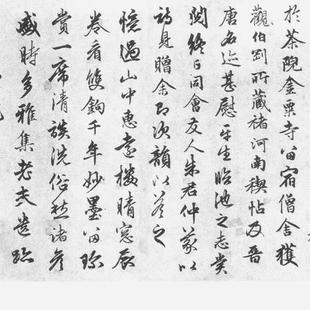 於茶院金粟寺留宿僧舍獲
觀伯則所藏褚河南稧帖及晉
唐名迹甚慰平生臨池之志
閱終日同會友人朱君仲義以
詩見贈余即次韻以答之
憶過山中惠遠樓晴窓展
卷看雙鉤千年妙墨留珎
賞一席清談洗俗愁諸彦
盛時多雅集老夫遺跡